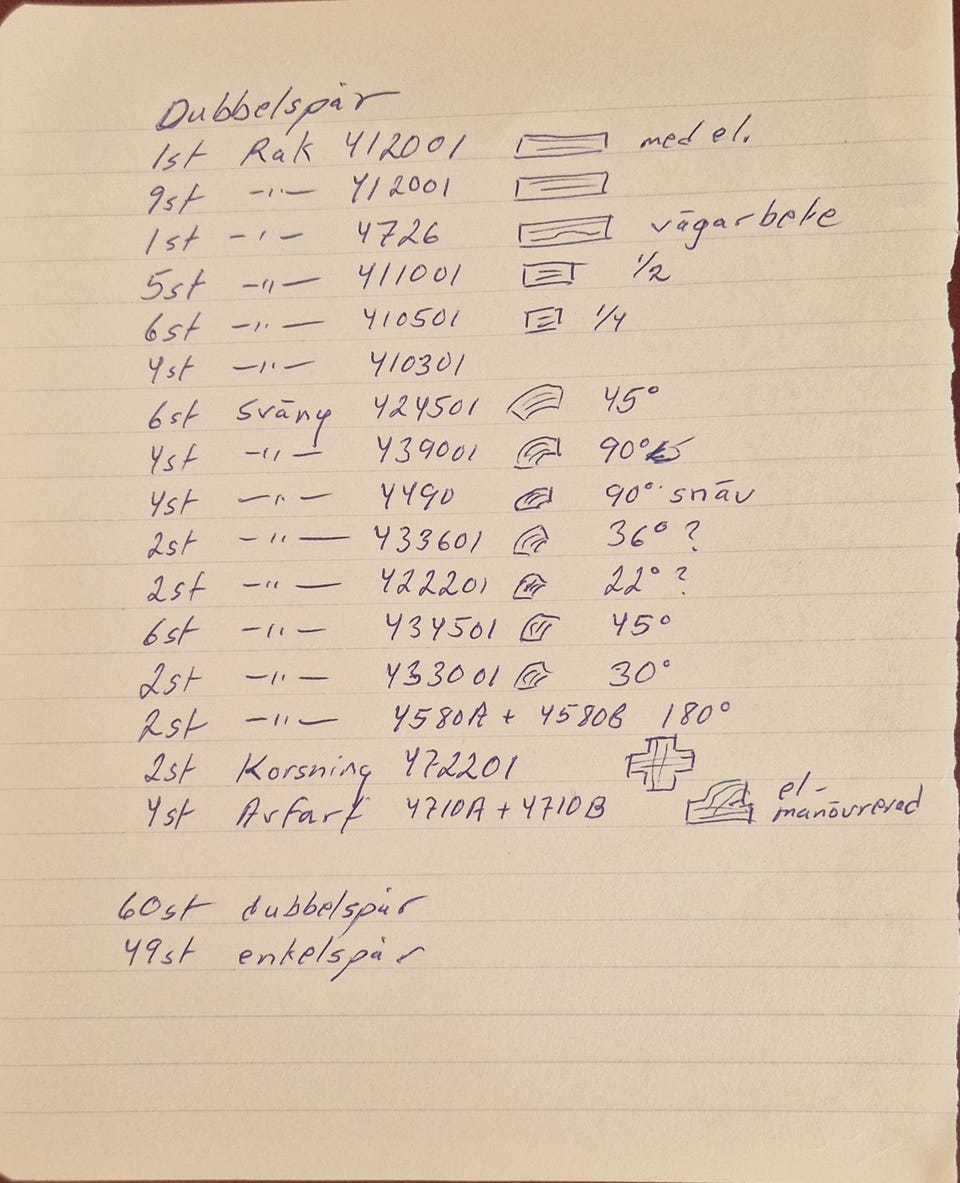 Dubbelspår
1st Rak 412001 med el.
9st -"- 412001
1st -"- 4726 vägarbete
5st -"- 411001 1/2
6st -"- 410501 1/4
4st -"- 410301
6st Sväng 424501 45°
4st -"- 439001 90°
4st -"- 4490 90° snäv
2st -"- 433601 36° ?
2st -"- 422201 22° ?
6st -"- 434501 45°
2st -"- 433001 30°
2st -"- 4580A + 4580B 180°
2st Korsning 472201
4st Avfart 4710A + 4710B el-
manövrerad
60st dubbelspår
49st enkelspår